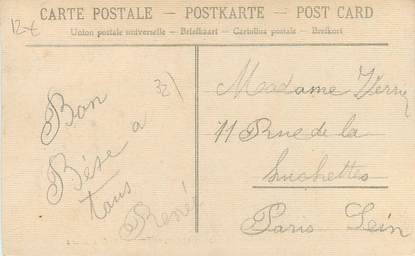 12€
CARTE POSTALE — POSTKARTE — POST CARD
Union postale universelle — Briefkaart — Cartolina postale — Brefkort
32)
Bon
Bése a
tous
René
Madame
11 Rue de la
Huchettes
Paris Sein